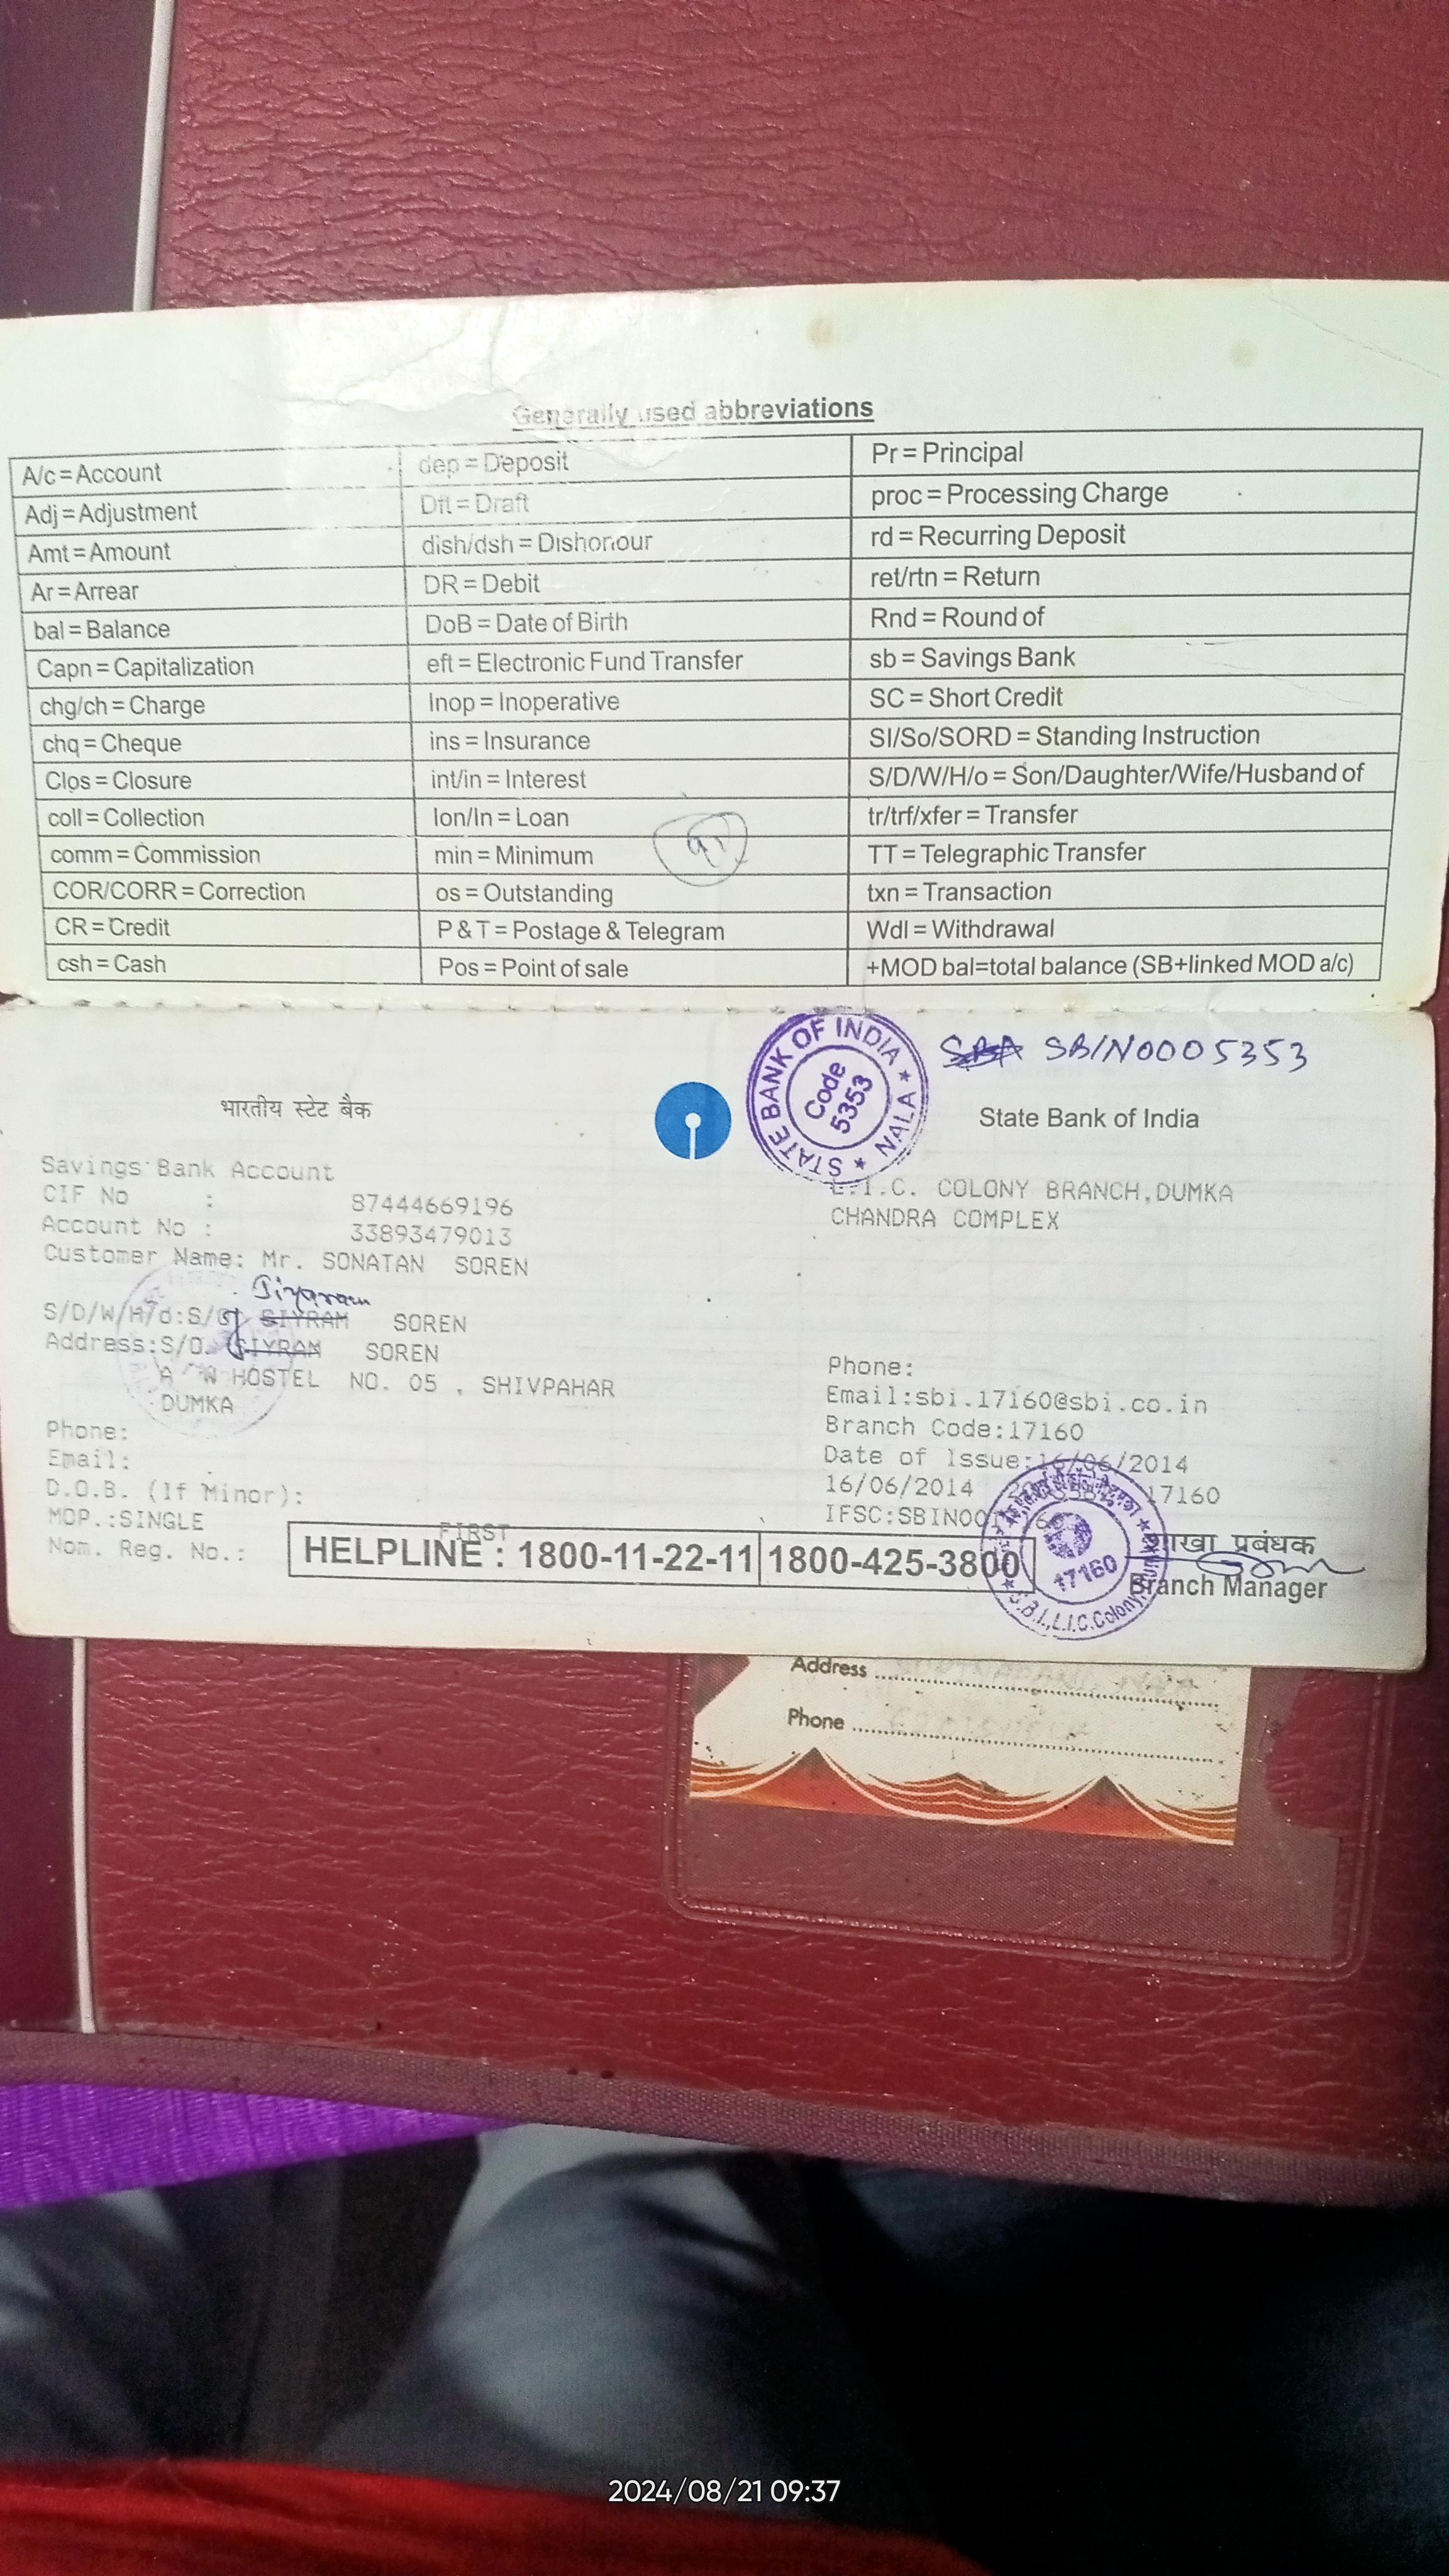 Generally used abbreviations
A/c = Account
Adj = Adjustment
Amt = Amount
Ar = Arrear
bal = Balance
Capn = Capitalization
chg/ch = Charge
chq = Cheque
Clos = Closure
coll = Collection
comm = Commission
COR/CORR = Correction
CR = Credit
csh = Cash
dep = Deposit
Dft = Draft
dish/dsh = Dishonour
DR = Debit
DoB = Date of Birth
eft = Electronic Fund Transfer
Inop = Inoperative
ins = Insurance
int/in = Interest
lon/ln = Loan
min = Minimum
os = Outstanding
P & T = Postage & Telegram
Pos = Point of sale
Pr = Principal
proc = Processing Charge
rd = Recurring Deposit
ret/rtn = Return
Rnd = Round of
sb = Savings Bank
SC = Short Credit
SI/So/SORD = Standing Instruction
S/D/W/H/o = Son/Daughter/Wife/Husband of
tr/trf/xfer = Transfer
TT = Telegraphic Transfer
txn = Transaction
Wdl = Withdrawal
+MOD bal=total balance (SB+linked MOD a/c)
STATE BANK OF INDIA ★ NALA ★
Code
5353
SBIN0005353
भारतीय स्टेट बैंक
State Bank of India
Savings Bank Account
CIF No : 87444669196
Account No : 33893479013
Customer Name: Mr. SONATAN SOREN
Siyaram
S/D/W/H/o:S/O SIYRAM SOREN
Address:S/O SIYRAM SOREN
HOSTEL NO. 05 , SHIVPAHAR
DUMKA
Phone:
Email:
D.O.B. (If Minor):
MOP.:SINGLE
FIRST
Nom. Reg. No.:
L.I.C. COLONY BRANCH,DUMKA
CHANDRA COMPLEX
Phone:
Email:sbi.17160@sbi.co.in
Branch Code:17160
Date of Issue:16/06/2014
16/06/2014 17160
IFSC:SBIN00
HELPLINE : 1800-11-22-11 1800-425-3800
17160
S.B.I., L.I.C. Colony
शाखा प्रबंधक
Branch Manager
Address
Phone
2024/08/21 09:37